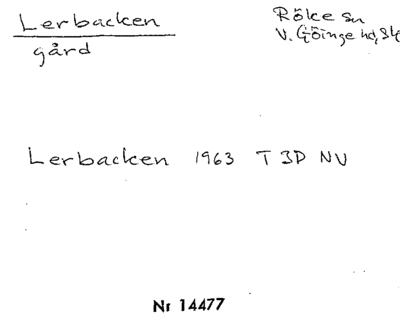 Lerbacken
gård
Röke sn
V. Göinge hd, Sk
Lerbacken 1963 T 3D NV
Nr 14477